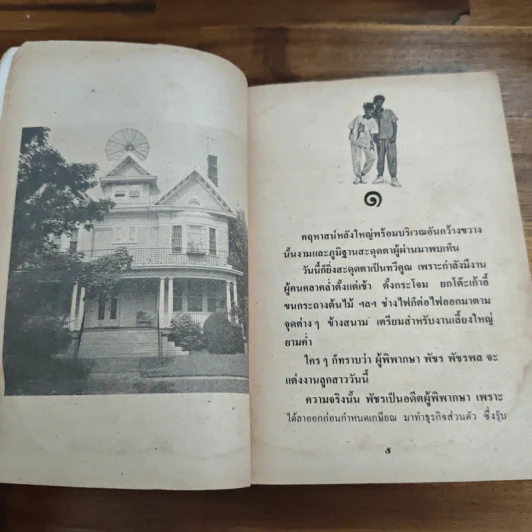 ๑
คฤหาสน์หลังใหญ่พร้อมบริเวณอันกว้างขวาง
นั้นงามและภูมิฐานสะดุดตาผู้ผ่านมาพบเห็น
วันนี้ก็ยิ่งสะดุดตาเป็นทวีคูณ เพราะกำลังมีงาน
ผู้คนคลาคล่ำตั้งแต่เช้า ตั้งกระโจม ยกโต๊ะเก้าอี้
ขนกระถางต้นไม้ ฯลฯ ช่างไฟก็ต่อไฟออกมาตาม
จุดต่าง ๆ ข้างสนาม เตรียมสำหรับงานเลี้ยงใหญ่
ยามค่ำ
ใคร ๆ ก็ทราบว่า ผู้พิพากษา พัชร พัชรพล จะ
แต่งงานลูกสาววันนี้
ความจริงนั้น พัชรเป็นอดีตผู้พิพากษา เพราะ
ได้ลาออกก่อนกำหนดเกษียณ มาทำธุรกิจส่วนตัว ซึ่งรุ่ง
๕